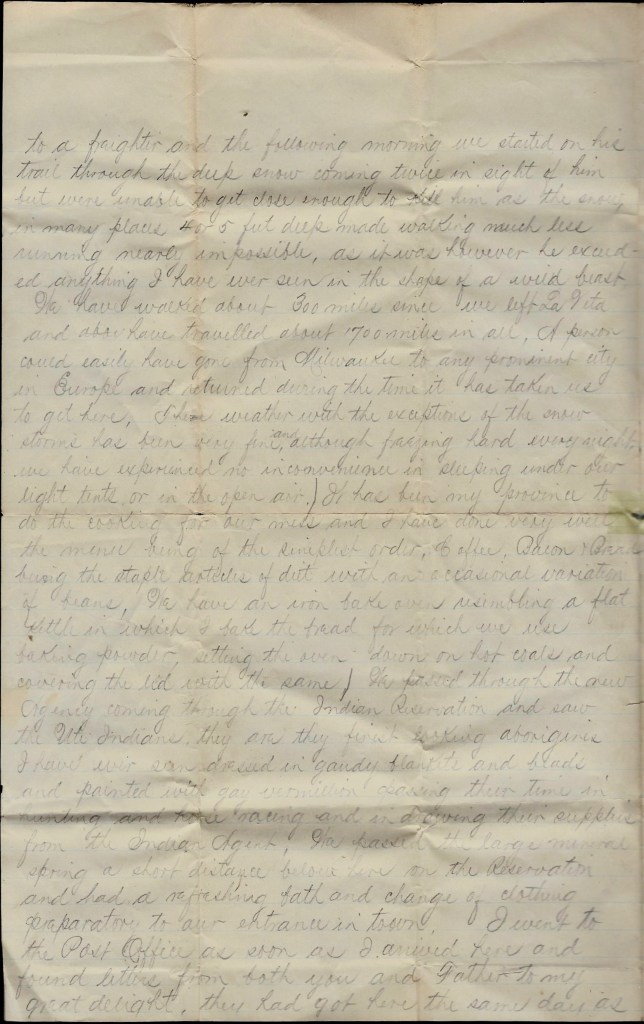 to a freighter and the following morning we started on his
trail through the deep snow coming twice in sight of him
but were unable to get close enough to kill him as the snow
in many places 4 or 5 feet deep made walking much less
running nearly impossible, as it was however he exceed-
ed anything I have ever seen in the shape of a wild beast
We have walked about 300 miles since we left La Veta
and above have travelled about 700 miles in all. A person
could easily have gone from Milwaukee to any prominent city
in Europe and returned during the time it has taken us
to get here. The weather with the exceptions of the snow
storms has been very fine and although freezing hard every night
we have experienced no inconvenience in sleeping under our
light tents or in the open air.) It has been my province to
do the cooking for our mess and I have done very well
the menu being of the simplest order, Coffee, Bacon & Bread
being the staple articles of diet with an occasional variation
of beans, We have an iron bake oven resembling a flat
kettle in which I bake the bread for which we use
baking powder, setting the oven down on hot coals and
covering the lid with the same) We passed through the new
Agency coming through the Indian Reservation and saw
the Ute Indians, they are they finest looking aborigines
I have ever seen dressed in gaudy blankets and beads
and painted with gay vermilion passing their time in
hunting and horse racing and in drawing their supplies
from the Indian Agent, We passed the large mineral
spring a short distance below here on the Reservation
and had a refreshing bath and change of clothing
preparatory to our entrance in town. I went to
the Post Office as soon as I arrived here and
found letters from both you and Father to my
great delight, they had got here the same day as